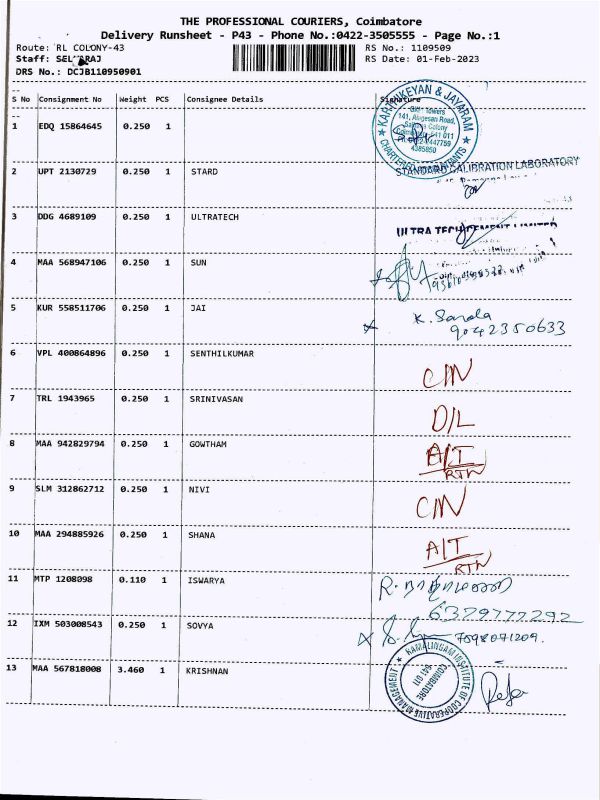 THE PROFESSIONAL COURIERS, Coimbatore
Delivery Runsheet - P43 - Phone No.:0422-3505555 - Page No.:1
Route: RL COLONY-43 RS No.: 1109509
Staff: SELVARAJ RS Date: 01-Feb-2023
DRS No.: DCJB110950901
S No Consignment No Weight PCS Consignee Details Signature
KARTHIKEYAN & JAYARAM
141, Alagesan Road,
CHARTERED ACCOUNTANTS
1 EDQ 15864645 0.250 1
2 UPT 2130729 0.250 1 STARD STANDARD CALIBRATION LABORATORY
3 DDG 4689109 0.250 1 ULTRATECH ULTRA TECH CEMENT LIMITED
4 MAA 568947106 0.250 1 SUN
5 KUR 558511706 0.250 1 JAI K. Sarala
9042350633
6 VPL 400864896 0.250 1 SENTHILKUMAR C/N
7 TRL 1943965 0.250 1 SRINIVASAN D/L
8 MAA 942829794 0.250 1 GOWTHAM A/T
RTN
9 SLM 312862712 0.250 1 NIVI C/N
10 MAA 294885926 0.250 1 SHANA A/T
RTN
11 MTP 1208098 0.110 1 ISWARYA
6379777292
12 IXM 503008543 0.250 1 SOVYA
13 MAA 567818008 3.460 1 KRISHNAN
RAMALINGAM INSTITUTE OF COOPERATIVE MANAGEMENT
COIMBATORE
641 011